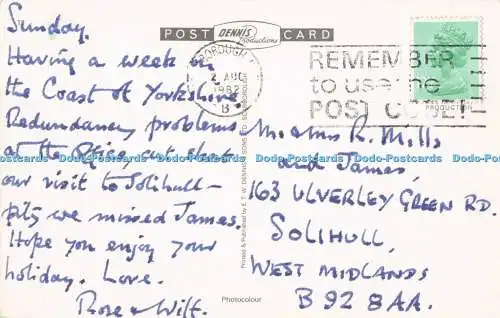 Sunday.
Having a week on
the Coast of Yorkshire
Redundancy problems
at the Office cut short
our visit to Solihull -
pity we missed James.
Hope you enjoy your
holiday. Love.
Rose & Wilf.
POST CARD
DENNIS
Productions
BOROUGH
2 AUG
1982
REMEMBER
to use the
POST CODE!!
Printed & Published by E. T. W. DENNIS & SONS LTD. SCARBOROUGH
Mr and Mrs R. Mills
and James,
163 ULVERLEY GREEN RD.
SOLIHULL,
WEST MIDLANDS
B92 8AA.
Photocolour
Dodo-Postcards Dodo-Postcards Dodo-Postcards Dodo-Postcards Dodo-Postcards